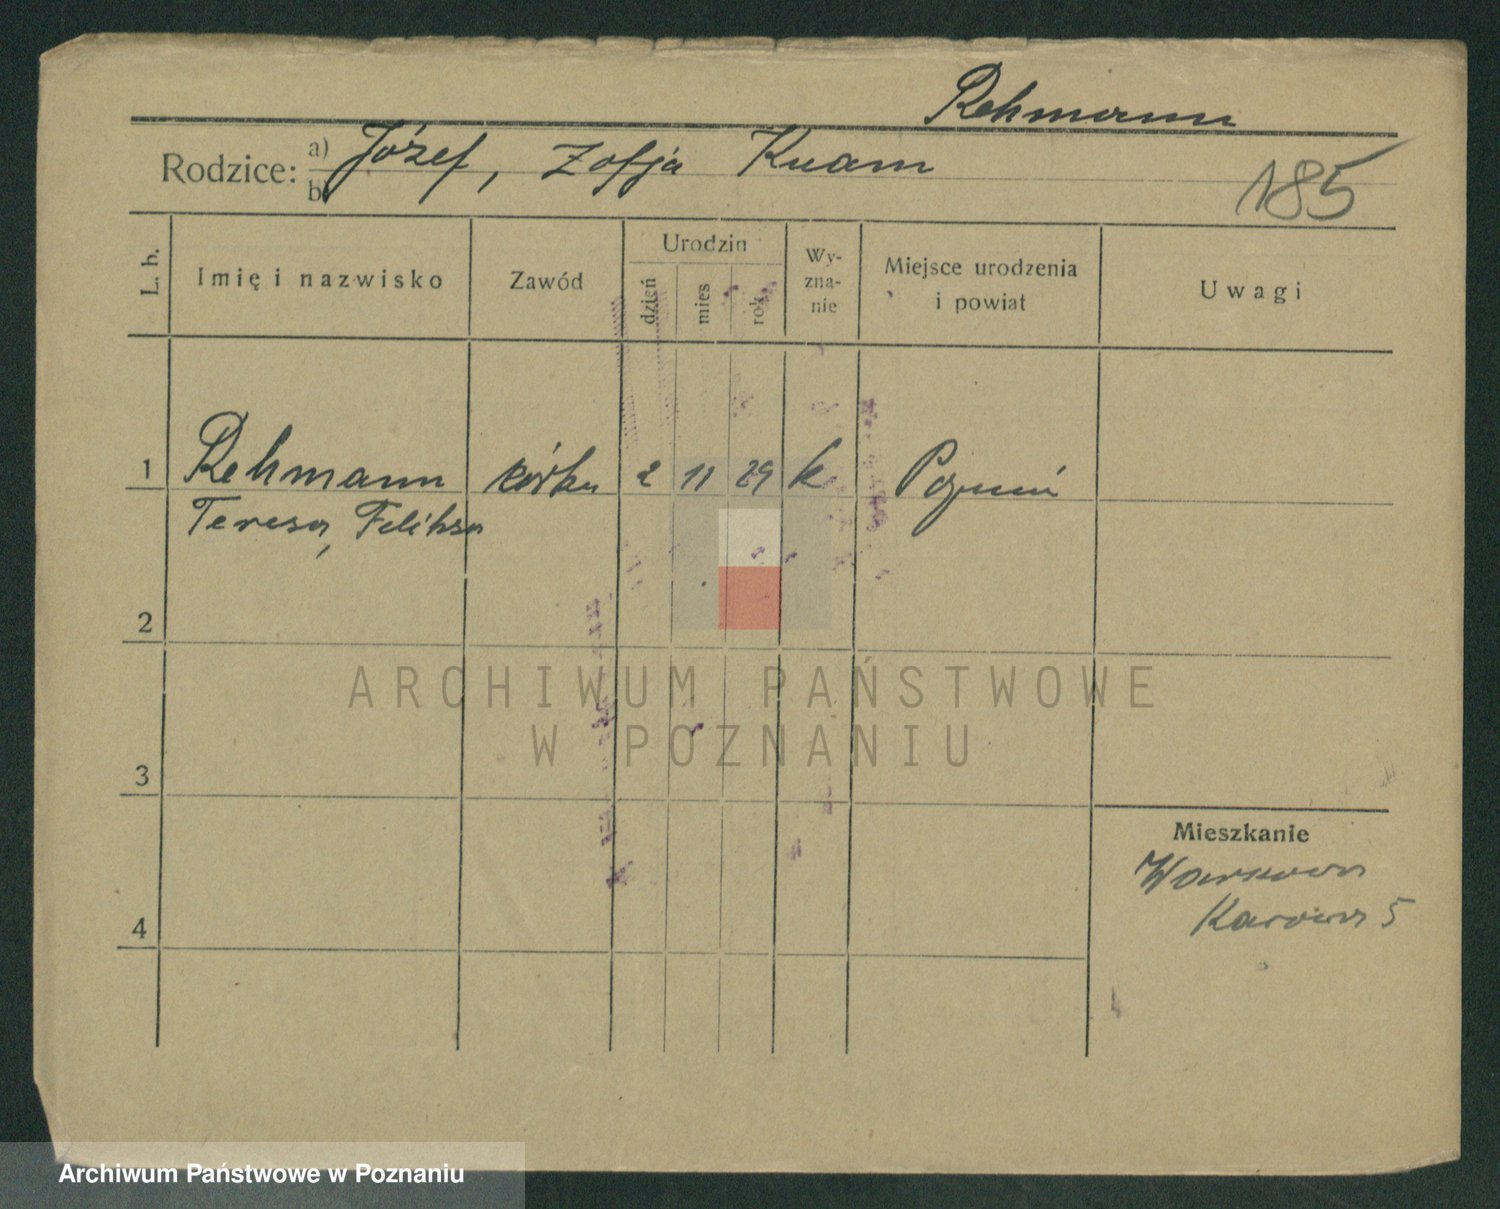 Rehmann
Rodzice: a) Józef, Zofja Knam
b)
185
L. b.
Imię i nazwisko
Zawód
Urodzin
dzień
mies
rok
Wy-
zna-
nie
Miejsce urodzenia
i powiat
Uwagi
1 Rehmann córka 2 11 29 k Poznań
Teresa, Feliksa
2
ARCHIWUM PAŃSTWOWE
W POZNANIU
3
Mieszkanie
Warszawa
4
Karowa 5
Archiwum Państwowe w Poznaniu